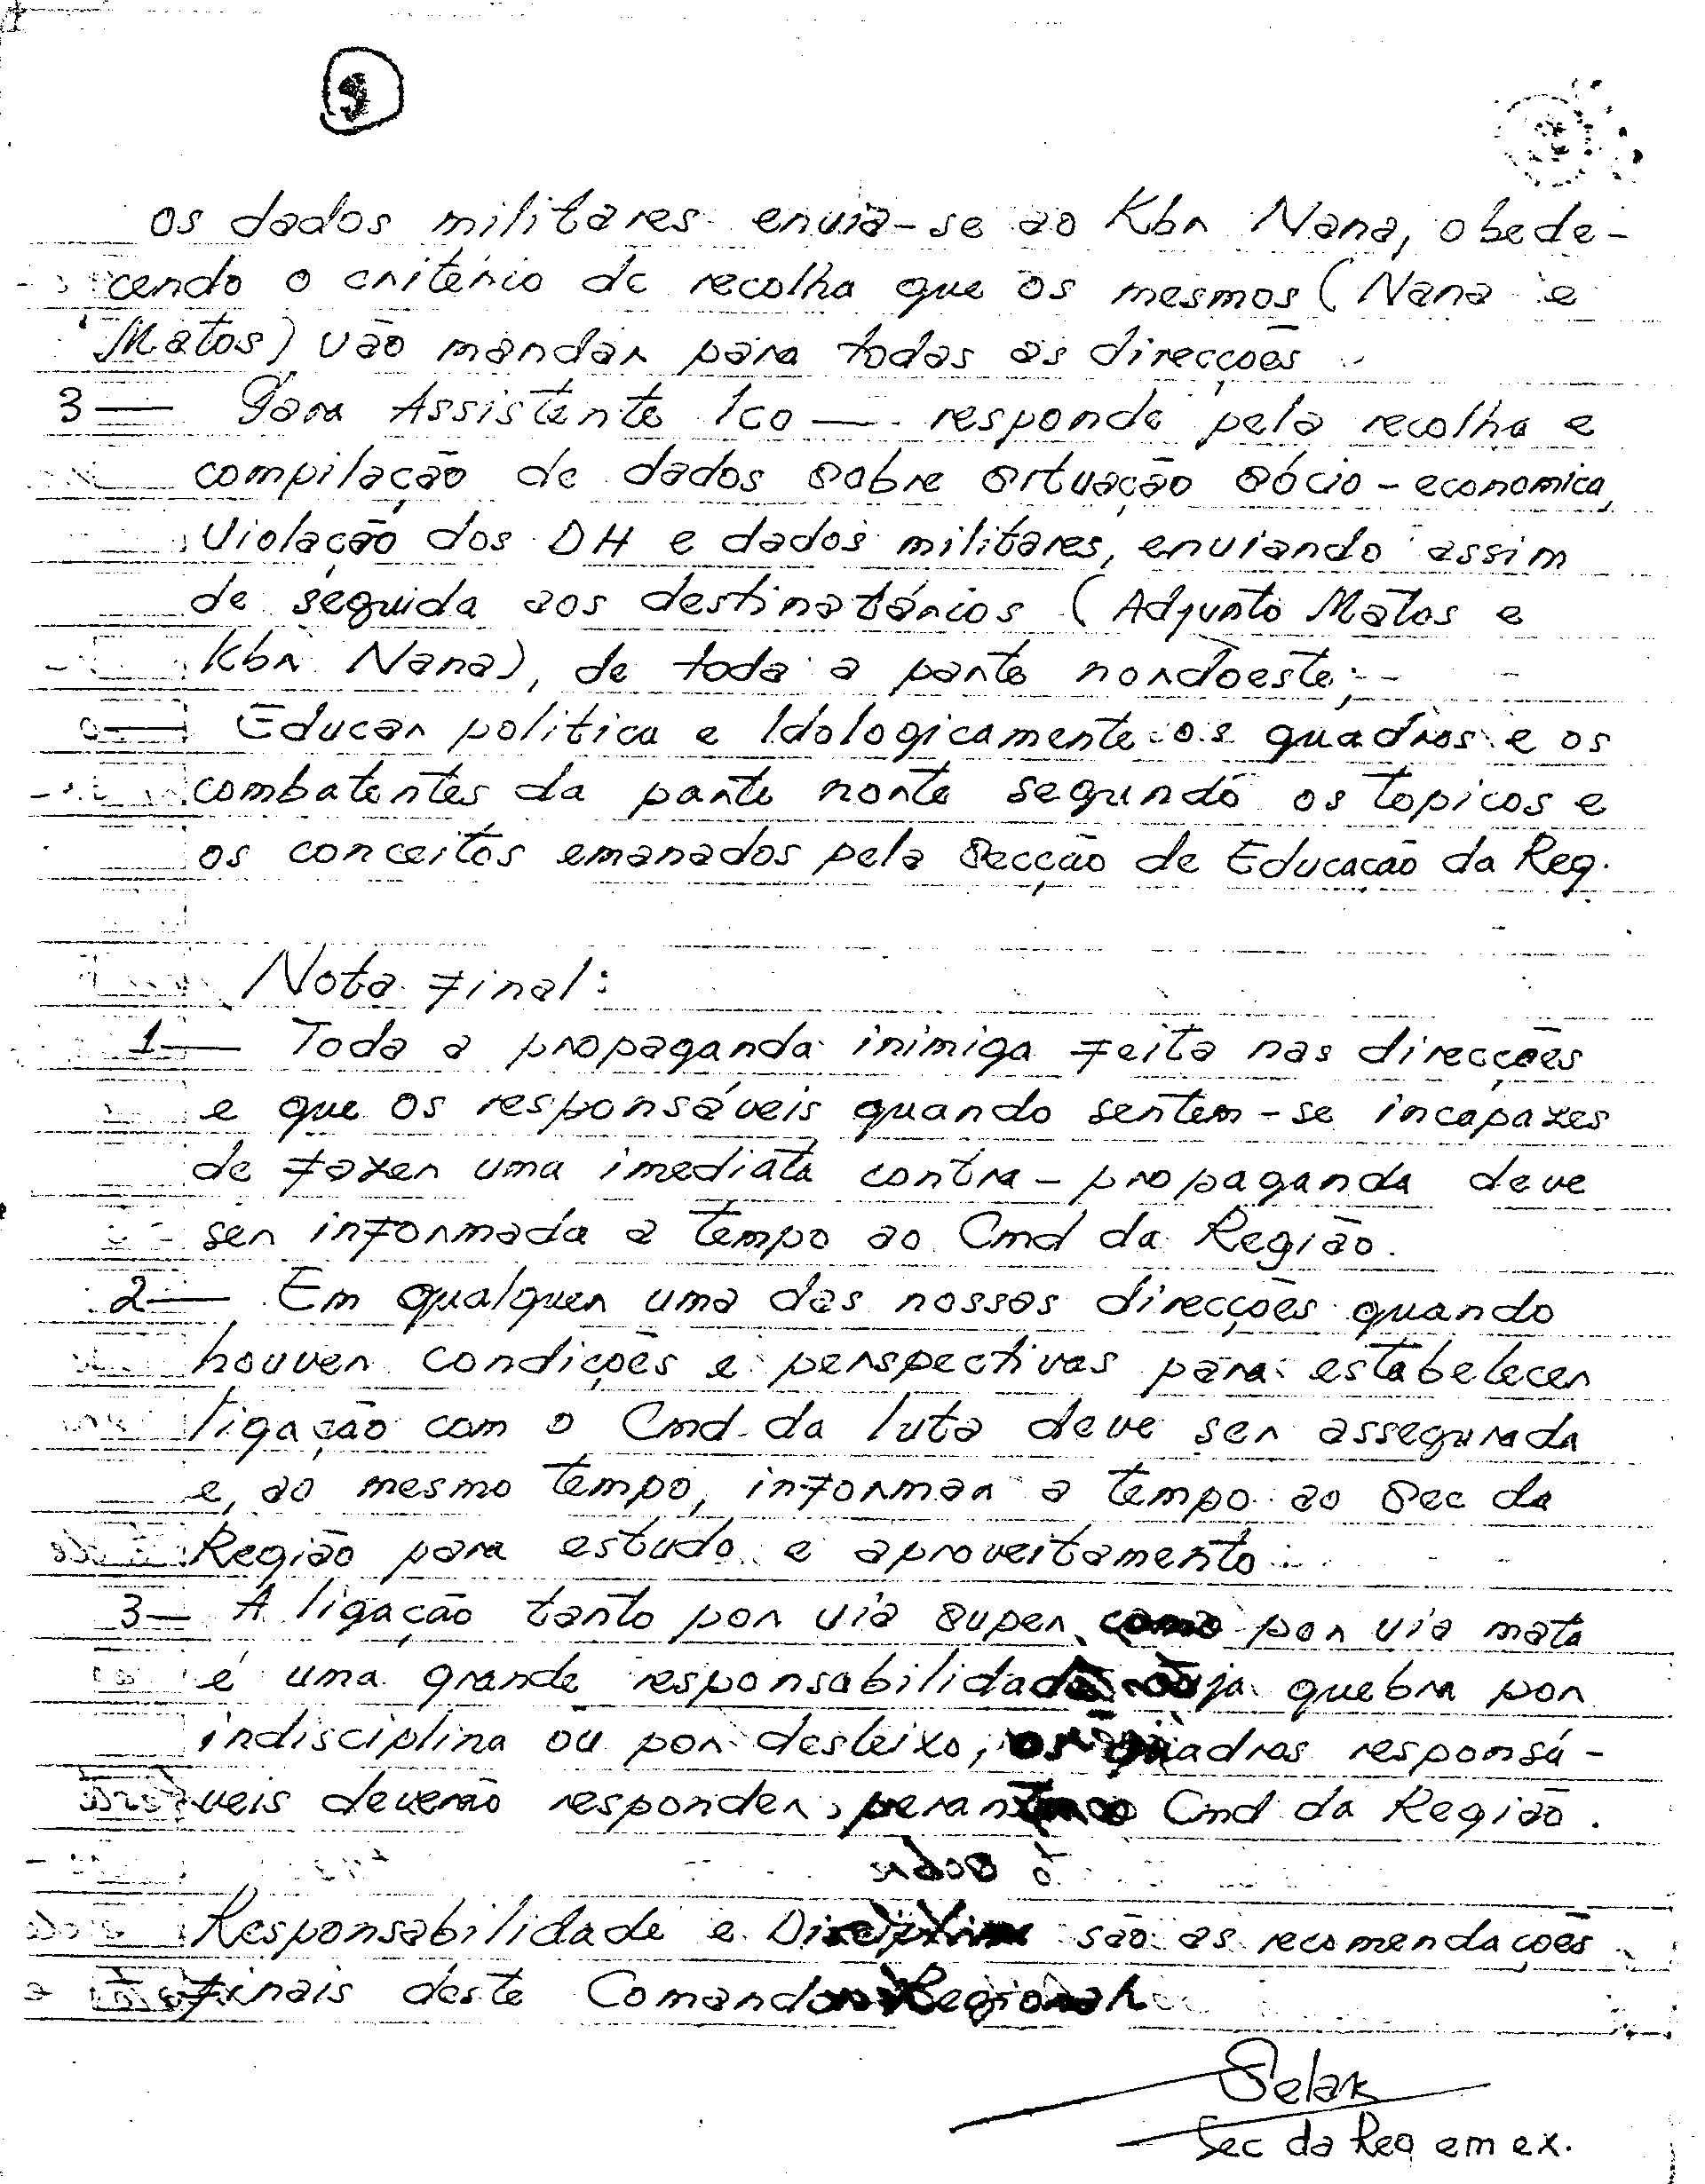 9
os dados militares envia-se ao Kbr Nana, obede-
cendo o critério de recolha que os mesmos (Nana e
Matos) vão mandar para todas as direcções
3— Para Assistente Ico — responde pela recolha e
compilação de dados sobre situação sócio-economica,
violação dos DH e dados militares, enviando assim
de seguida aos destinatários (Adjunto Matos e
Kbr Nana), de toda a parte nordoeste;-
— Educar politica e Idologicamente os quadros e os
combatentes da parte norte segundo os topicos e
os conceitos emanados pela Secção de Educação da Reg.
Nota Final:
1— Toda a propaganda inimiga feita nas direcções
e que os responsáveis quando sentem-se incapazes
de fazer uma imediata contra-propaganda deve
ser informada a tempo ao Cmd da Região.
2— Em qualquer uma das nossas direcções quando
houver condições e perspectivas para estabelecer
ligação com o Cmd da luta deve ser assegurada
e, ao mesmo tempo, informar a tempo ao Sec da
Região para estudo e aproveitamento.
3— A ligação tanto por via super, como por via mata
é uma grande responsabilidade cuja quebra por
indisciplina ou por desleixo, os quadros responsá-
veis deverão responder perante o Cmd da Região.
Responsabilidade e Disciplina são as recomendações
finais deste Comando Regional.
Selak
Sec da Reg em ex.